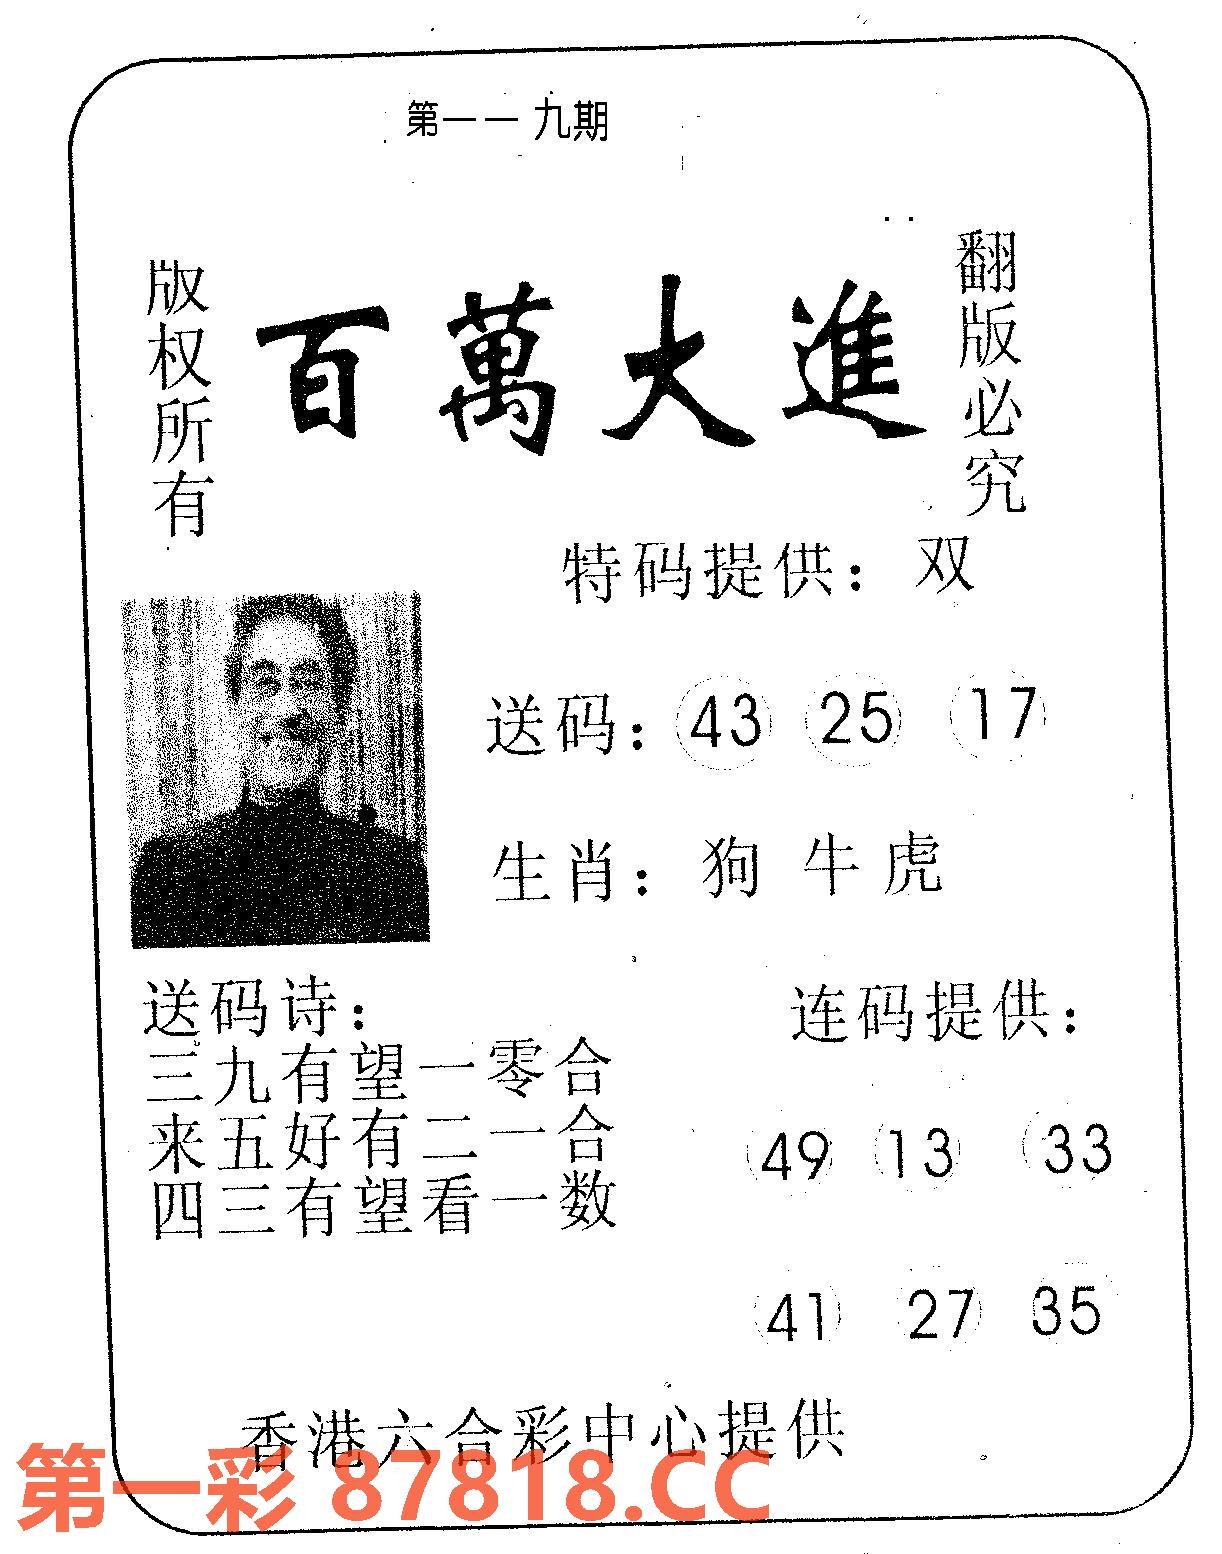 第一一九期
版权所有
百萬大進
翻版必究
特码提供：双
送码：43 25 17
生肖：狗 牛 虎
送码诗：
三九有望一零合
来五好有二一合
四三有望看一数
连码提供：
49 13 33
41 27 35
香港六合彩中心提供
第一彩 87818.CC